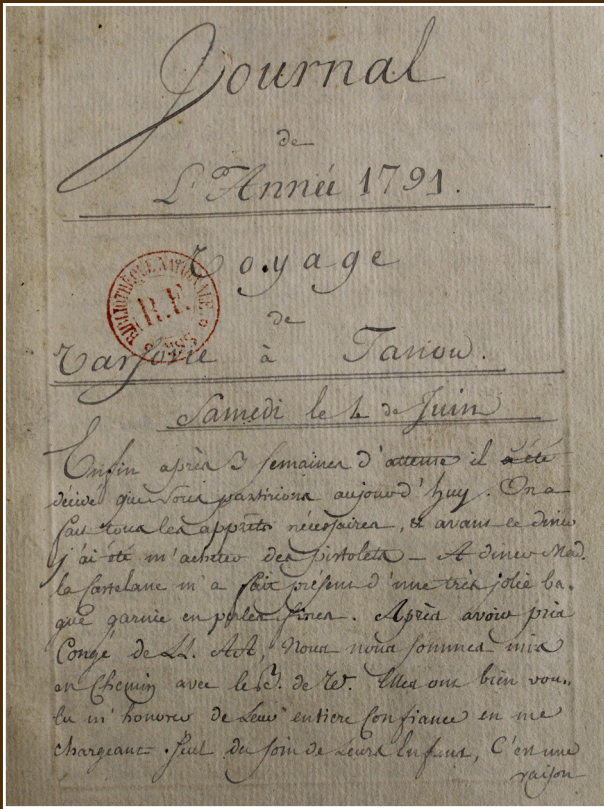 Journal
de
L'Année 1791.
Voyage
BIBLIOTHÈQUE NATIONALE
R.F.
de
Varsovie à Tarnow.
Samedi le 4 de Juin
Enfin après 3 semaines d'attente il a été
décidé que nous partirions aujourd'huy. On a
fait tous les apprêts nécessaires, et avant le diner
j'ai été m'acheter des pistolets _ A diner Mad.
la Castelane m'a fait présent d'une très jolie ba„
gue garnie en perles fines. Après avoir pris
Congé de LL. Alt, Nous nous sommes mis
en Chemin avec le P. de W. Elles ont bien vou„
lu m'honorer de Leur entiere Confiance en me
chargeant seul du soin de Leurs Enfans, C'en une
raison